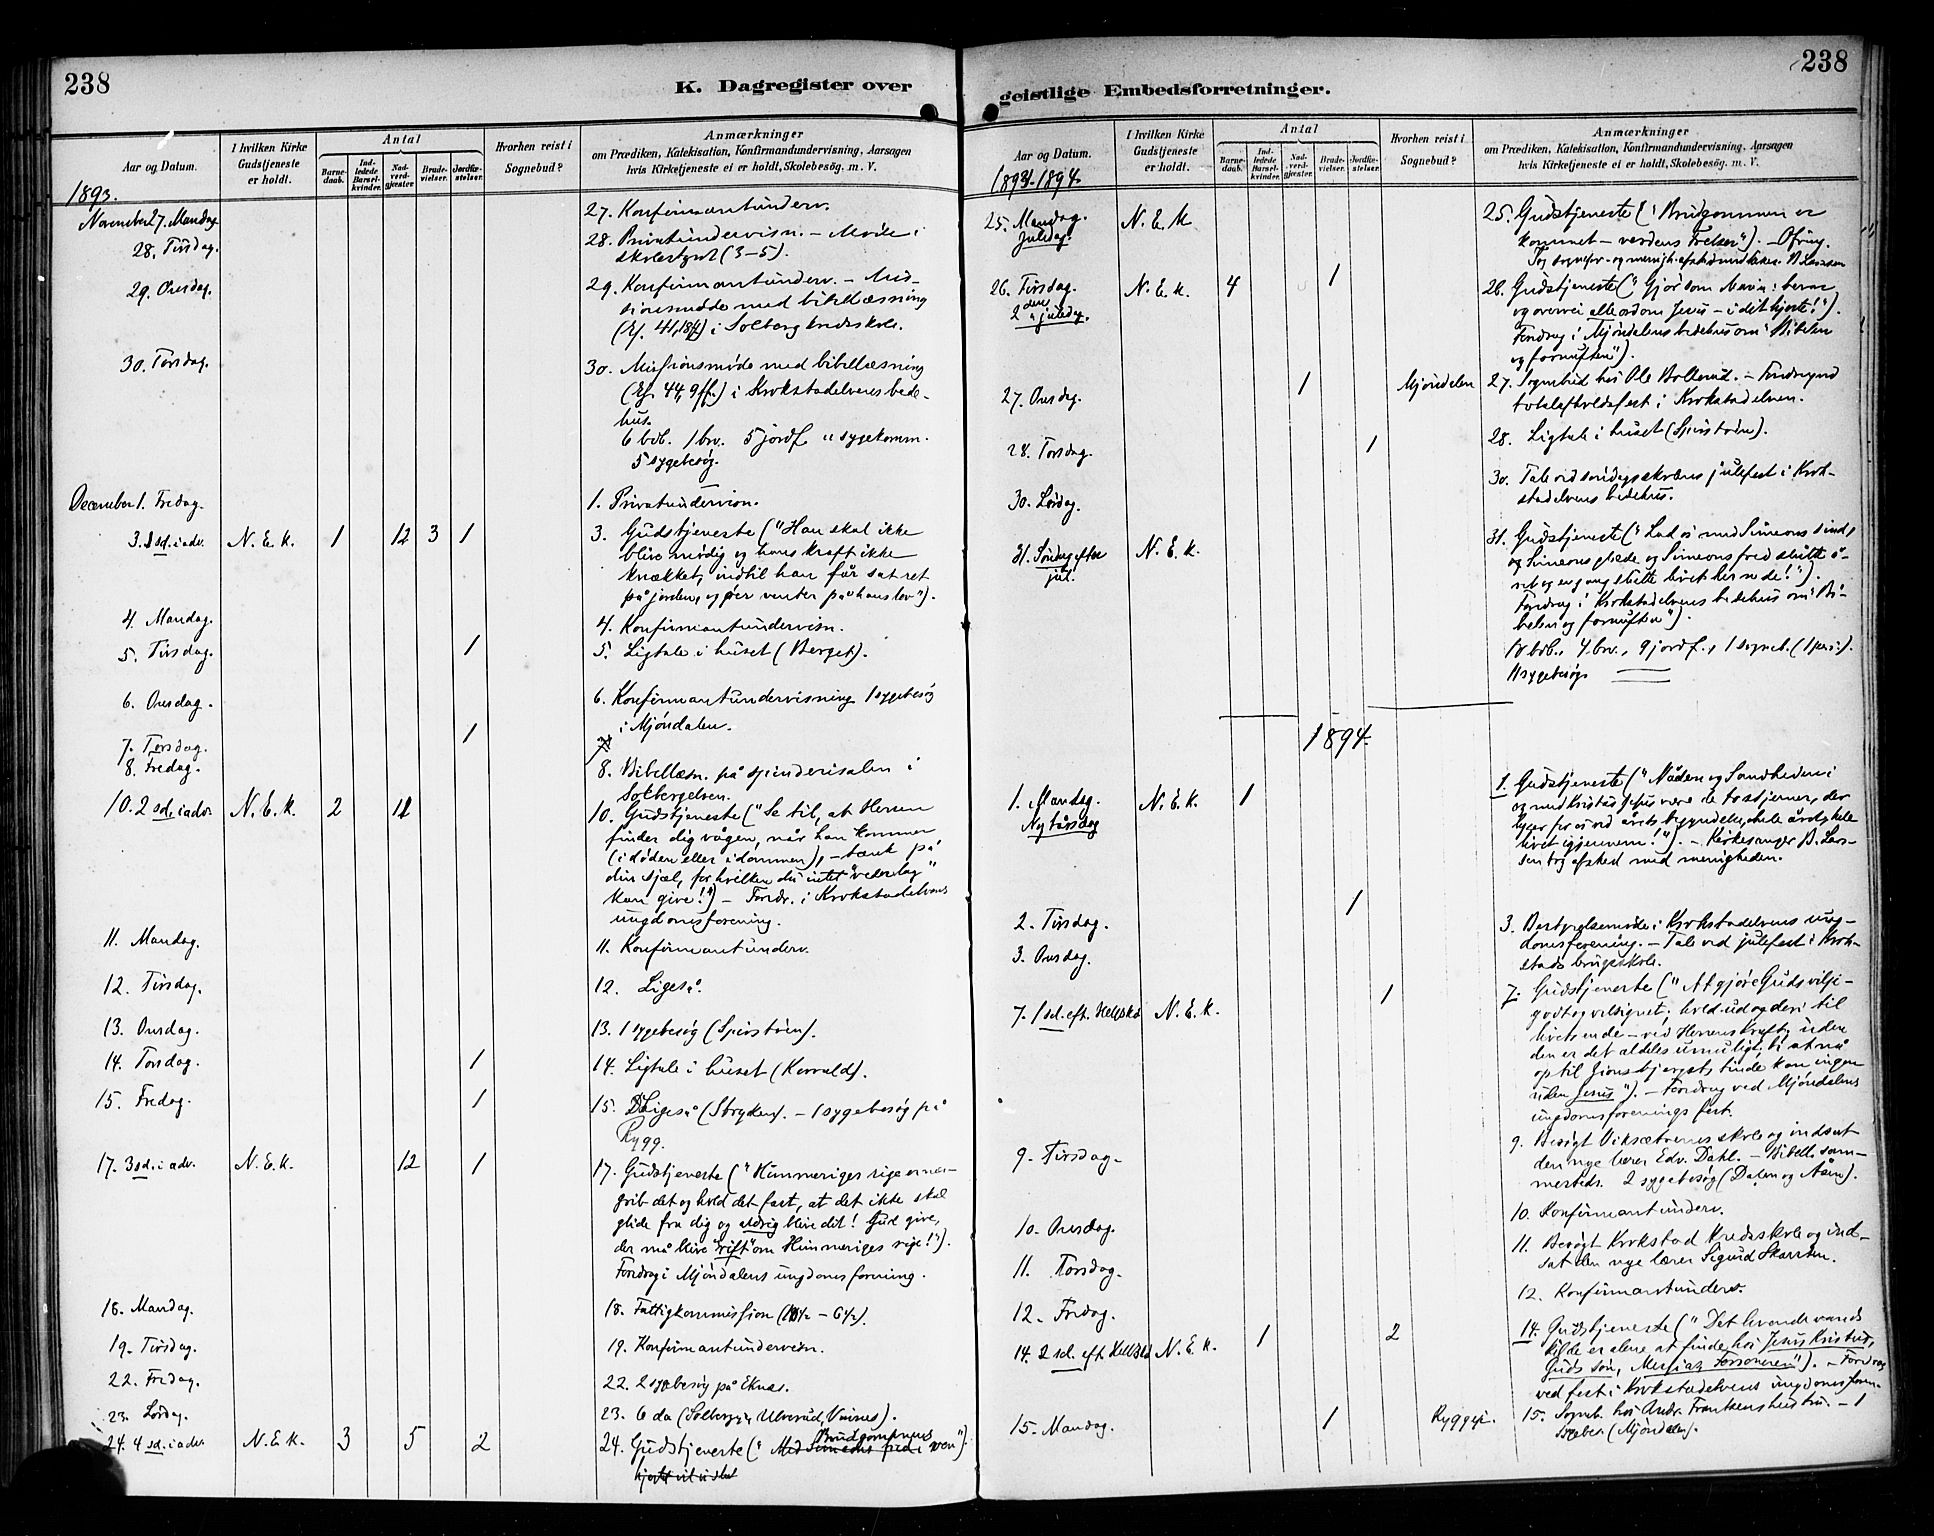 238
K. Dagregister over
Aar og Datum.
I hvilken Kirke Gudstjeneste er holdt.
Antal
Barne-daab.
Ind-ledede Barsel-kvinder.
Nad-verd-gjæster
Brude-vielser.
Jordfæ-stelser.
Hvorhen reist i Sognebud?
Anmærkninger
om Prædiken, Katekisation, Konfirmandundervisning, Aarsagen
hvis Kirketjeneste ei er holdt, Skolebesög. m. V.
1893.
November 27. Mandag
27. Konfirmantunderv.
28. Tirsdag.
28. Privatundervisn. – Møde i
skolestyret (3–5).
29. Onsdag.
29. Konfirmantunderv. – Mis-
sionsmøde med bibellæsning
(Ef. 41,18ff) i Solberg kredsskole.
30. Torsdag.
30. Missionsmøde med bibellæsning
(Ef. 44,9ff.) i Krokstadelvens bede-
hus.
6 bdb. 1 brv. 5 jordf. " sygekomm.
5 sygebesøg.
December 1. Fredag.
1. Privatundervisn.
3. 1 sd. i adv. N. E. K. 1 12 3 1
3. Gudstjeneste ("Han skal ikke
blive mødig og hans kraft ikke
knækket, indtil han får sat ret
på jorden, og øer venter på hans lov").
4. Mandag.
4. Konfirmantundervisn.
5. Tirsdag. 1
5. Ligtale i huset (Berget).
6. Onsdag.
6. Konfirmantundervisning 1 sygebesøg
i Mjøndalen.
7. Torsdag. 1
8. Fredag.
8. Bibellæsn. på spinderisalen i
Solbergelven.
10. 2 sd. i adv. N. E. K. 2 11
10. Gudstjeneste ("Se til, at Herren
finder dig vågen, når han kommer
(i døden eller i dommen), – tænk på
din sjæl, for hvilken du intet "vederlag"
kan give!") – Foredr. i Krokstadelvens
ungdomsforening.
11. Mandag.
11. Konfirmantunderv.
12. Tirsdag.
12. Ligeså.
13. Onsdag.
13. 1 sygebesøg (Spirstøen).
14. Torsdag. 1
14. Ligtale i huset (Korvald).
15. Fredag. 1
15. Ligeså (Stryken). – 1 sygebesøg på
Rygg.
17. 3 sd. i adv. N. E. K. 12 1
17. Gudstjeneste ("Himmeriges rige er nær –
grib det og hold det fast, at det ikke skal
glide fra dig og aldrig blive dit! Gud give,
der må blive "rift" om Himmeriges rige!").
Foredrag i Mjøndalens ungdomsforening.
18. Mandag.
18. Fattigkommission (10½ – 6½).
19. Tirsdag.
19. Konfirmantundervisn.
22. Fredag.
22. 2 sygebesøg på Eknæs.
23. Lørdag.
23. 6 do (Solberg, Ulverud, Vinnes).
24. 4 sd. i adv. N. E. K. 3 5 2
24. Gudstjeneste (" Brudgommens ven").
238
geistlige Embedsforretninger.
Aar og Datum.
I hvilken Kirke Gudstjeneste er holdt.
Antal
Barne-daab.
Ind-ledede Barsel-kvinder.
Nad-verd-gjæster.
Brude-vielser.
Jordfæ-stelser.
Hvorhen reist i Sognebud?
Anmærkninger
om Prædiken, Katekisation, Konfirmandundervisning, Aarsagen
hvis Kirketjeneste ei er holdt, Skolebesög. m. V.
1893-1894.
25. Mandag. Juledag. N. E. K
25. Gudstjeneste ("Brudgommen er
kommet – verdens Frelser"). – Ofring.
26. Tirsdag. 2den juledag. N. E. K. 4 1
26. Gudstjeneste ("Gjør som Maria: bevar
og overvei alle ordom Jesus – i dit hjerte!").
Foredrag i Mjøndalens bedehus om "Bibelen
og fornuften").
27. Onsdag. 1 Mjøndalen
27. Sognebud hos Ole Bollerud. – Foredrag ved
totalafholdsfest i Krokstadelven.
28. Torsdag. 1
28. Ligtale i huset (Spirstøen).
30. Lørdag.
30. Tale ved søndagsskolens julefest i Krok-
stadelvens bedehus.
31. Søndag efter jul. N. E. K.
31. Gudstjeneste ("Lad os med Simeons sind,
og Simeons glæde og Simeons fred slutte å-
ret og engang slutte livet her nede!").
Foredrag i Krokstadelvens bedehus om "Bi-
belen og fornuften").
10 bdb., 4 brv., 9 jordf., 1 sogneb. (1 pers.).
11 sygebesøg
1894.
1. Mandag. Nytårsdag N. E. K. 1
1. Gudstjeneste ("Nåden og Sandheden i
og med Kristus Jesus være de to stjerner, der
lyser for os ved årets begyndelse, hele året, hele
livet igjennem!"). – Kirkesanger B. Lars-
sen tog afsked med menigheden.
2. Tirsdag. 1
3. Onsdag.
3. Bestyrelsesmøde i Krokstadelvens ung-
domsforening. – Tale ved julefest i Krok-
stads brugsskole.
7. 1 sd. eft. Hel3kd N. E. K. 1
7. Gudstjeneste ("At gjøre Guds vilje –
godt og velsignet; hold ud og deri til
livets ende – ved Herrens kraft; uden
den er det aldeles umuligt; ti at nå
op til Zionsbjergets tinde kan ingen
uden Jesus"). – Foredrag ved Mjøndalens
ungdomsforenings fest.
9. Tirsdag.
9. Besøgt Viksætrenes skole og indsat
den nye lærer Edv. Dahl. – Bibell. sam-
mesteds. 2 sygebesøg (Dalen og Åsen).
10. Onsdag.
10. Konfirmantunderv.
11. Torsdag.
11. Besøgt Krokstad kredsskole og ind-
sat den nye lærer Sigurd Skarsten.
12. Fredag.
12. Konfirmantunderv.
14. 2 sd. eft. Hel3kd N. E. K. 1 2
14. Gudstjeneste ("Det levende vands
kilde er alene at finde hos Jesus Kristus,
Guds søn, Messias, Forsoneren"). – Foredrag
ved fest i Krokstadelvens ungdomsforen.
15. Mandag. 1 Ryggeje.
15. Sogneb. hos Andr. Frantzens hustru. – 1
sygebes. (Mjøndalen).